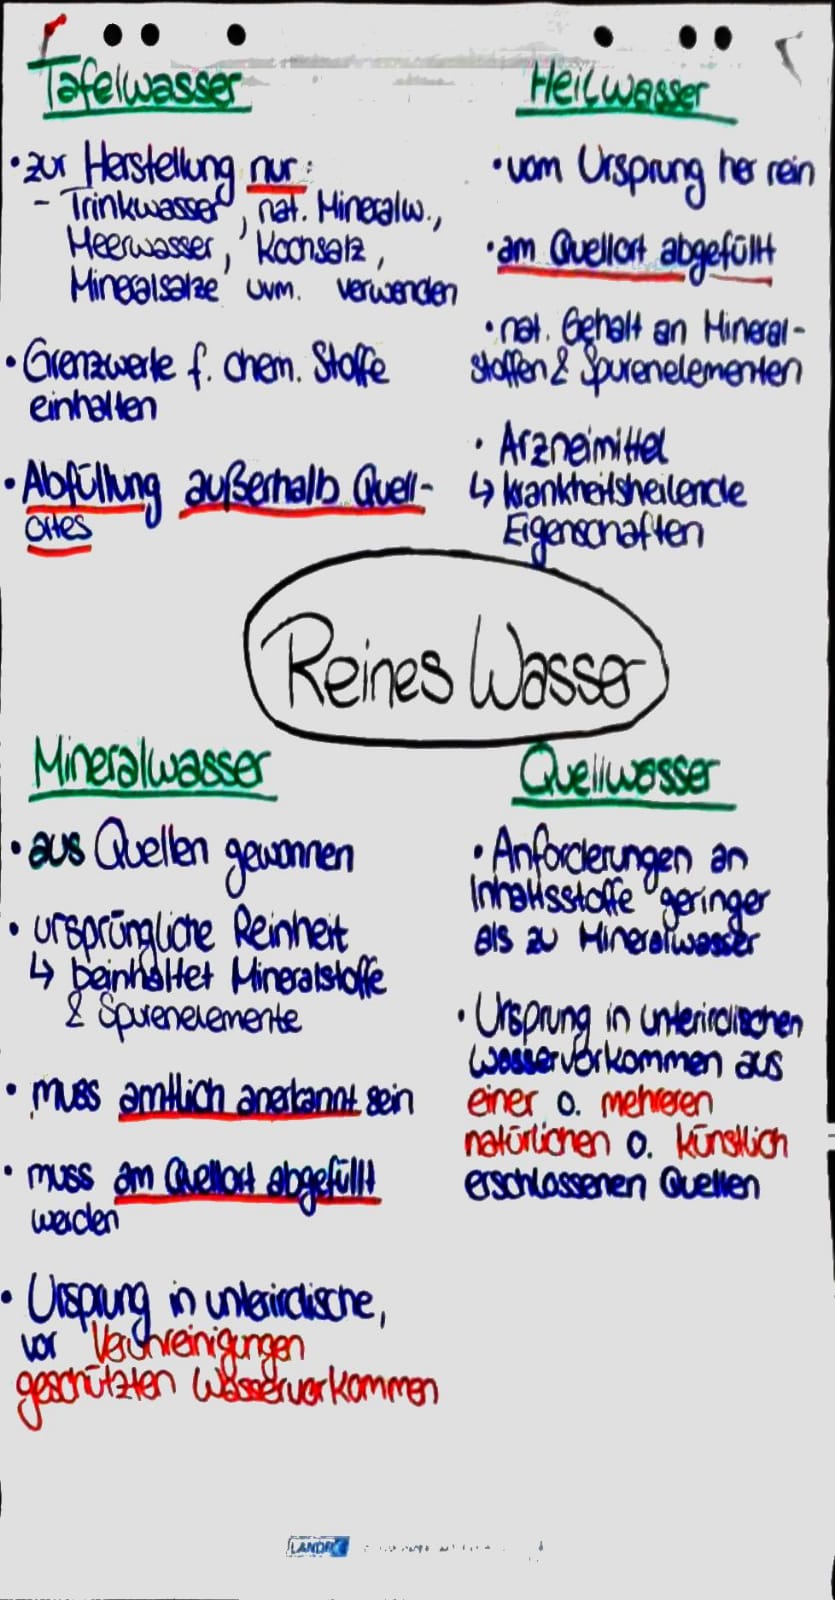 Tafelwasser
• zur Herstellung nur:
- Trinkwasser, nat. Mineralw.,
Meerwasser, Kochsalz,
Mineralsalze uvm. verwenden
• Grenzwerte f. chem. Stoffe
einhalten
• Abfüllung außerhalb Quell-
ortes
Heilwasser
• vom Ursprung her rein
• am Quellort abgefüllt
• nat. Gehalt an Mineral-
stoffen & Spurenelementen
• Arzneimittel
↳ krankheitsheilende
Eigenschaften
Reines Wasser
Mineralwasser
• aus Quellen gewonnen
• ursprüngliche Reinheit
↳ beinhaltet Mineralstoffe
& Spurenelemente
• muss amtlich anerkannt sein
• muss am Quellort abgefüllt
werden
• Ursprung in unterirdische,
vor Verunreinigungen
geschützten Wasservorkommen
Quellwasser
• Anforderungen an
Inhaltsstoffe geringer
als zu Mineralwasser
• Ursprung in unterirdischen
Wasservorkommen aus
einer o. mehreren
natürlichen o. künstlich
erschlossenen Quellen